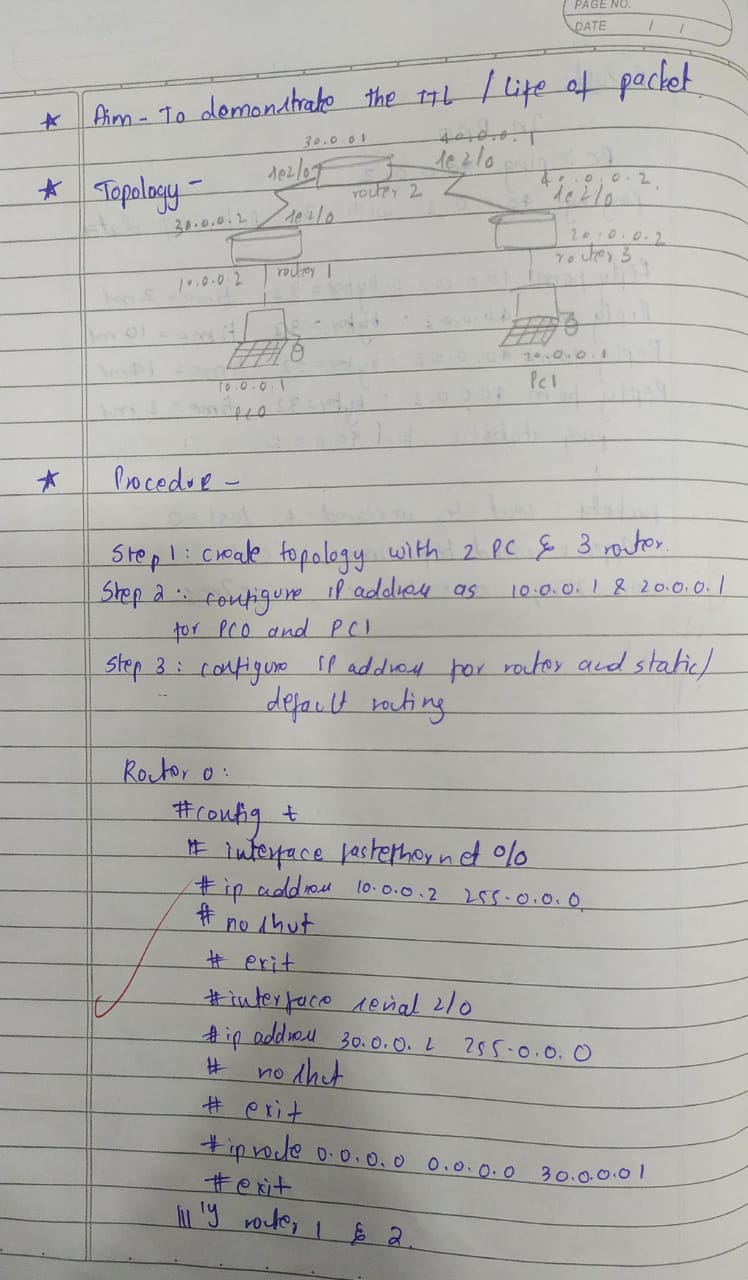 PAGE NO.
DATE / /
★ Aim - To demonstrate the TTL / Life of packet.
★ Topology -
30.0.01 40.0.0.1
se2/0 se2/0
router 2
40.0.0.2
se2/0
30.0.0.2 se2/0
20.0.0.2
router 3
10.0.0.2 router 1
10.0.0.1
PC0
20.0.0.1
PC1
★ Procedure -
Step 1: create topology with 2 PC & 3 router.
Step 2: configure IP address as 10.0.0.1 & 20.0.0.1
for PC0 and PC1
Step 3: configure IP address for router and static/
default routing
Router 0:
#config t
# interface fastethernet 0/0
# ip address 10.0.0.2 255.0.0.0
# no shut
# exit
#interface serial 2/0
#ip address 30.0.0.2 255.0.0.0
# no shut
# exit
#ip route 0.0.0.0 0.0.0.0 30.0.0.01
#exit
|||'y router 1 & 2.